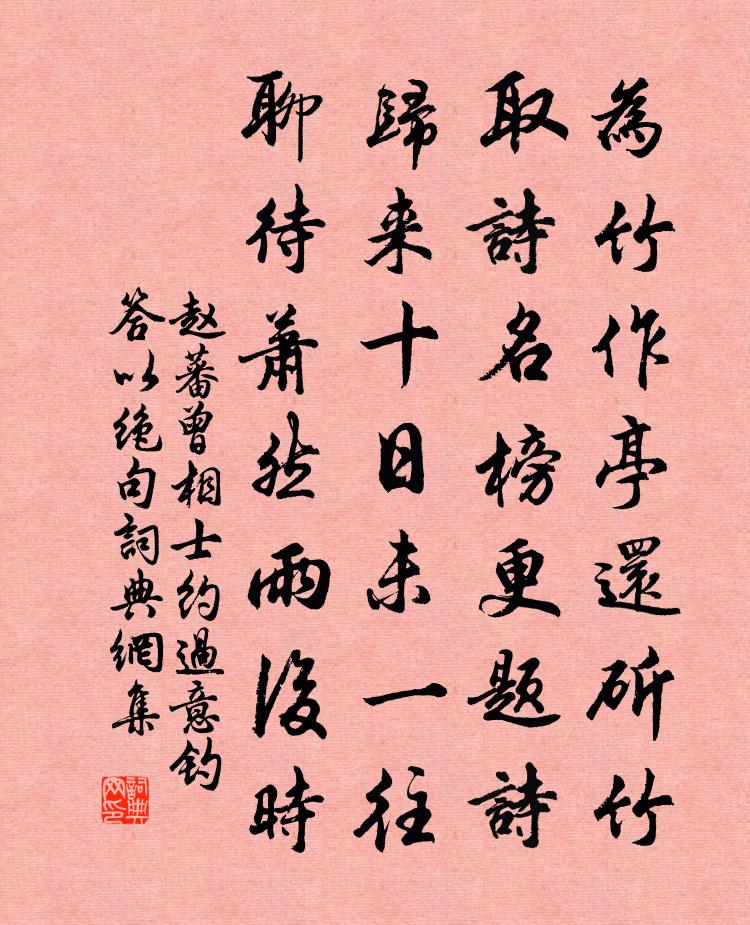 為竹作亭還斫竹
取詩名榜更題詩
歸来十日未一往
聊待蕭然雨後時
赵蕃曾相士约過意钓
答以绝句詞典網集
詞典
网印